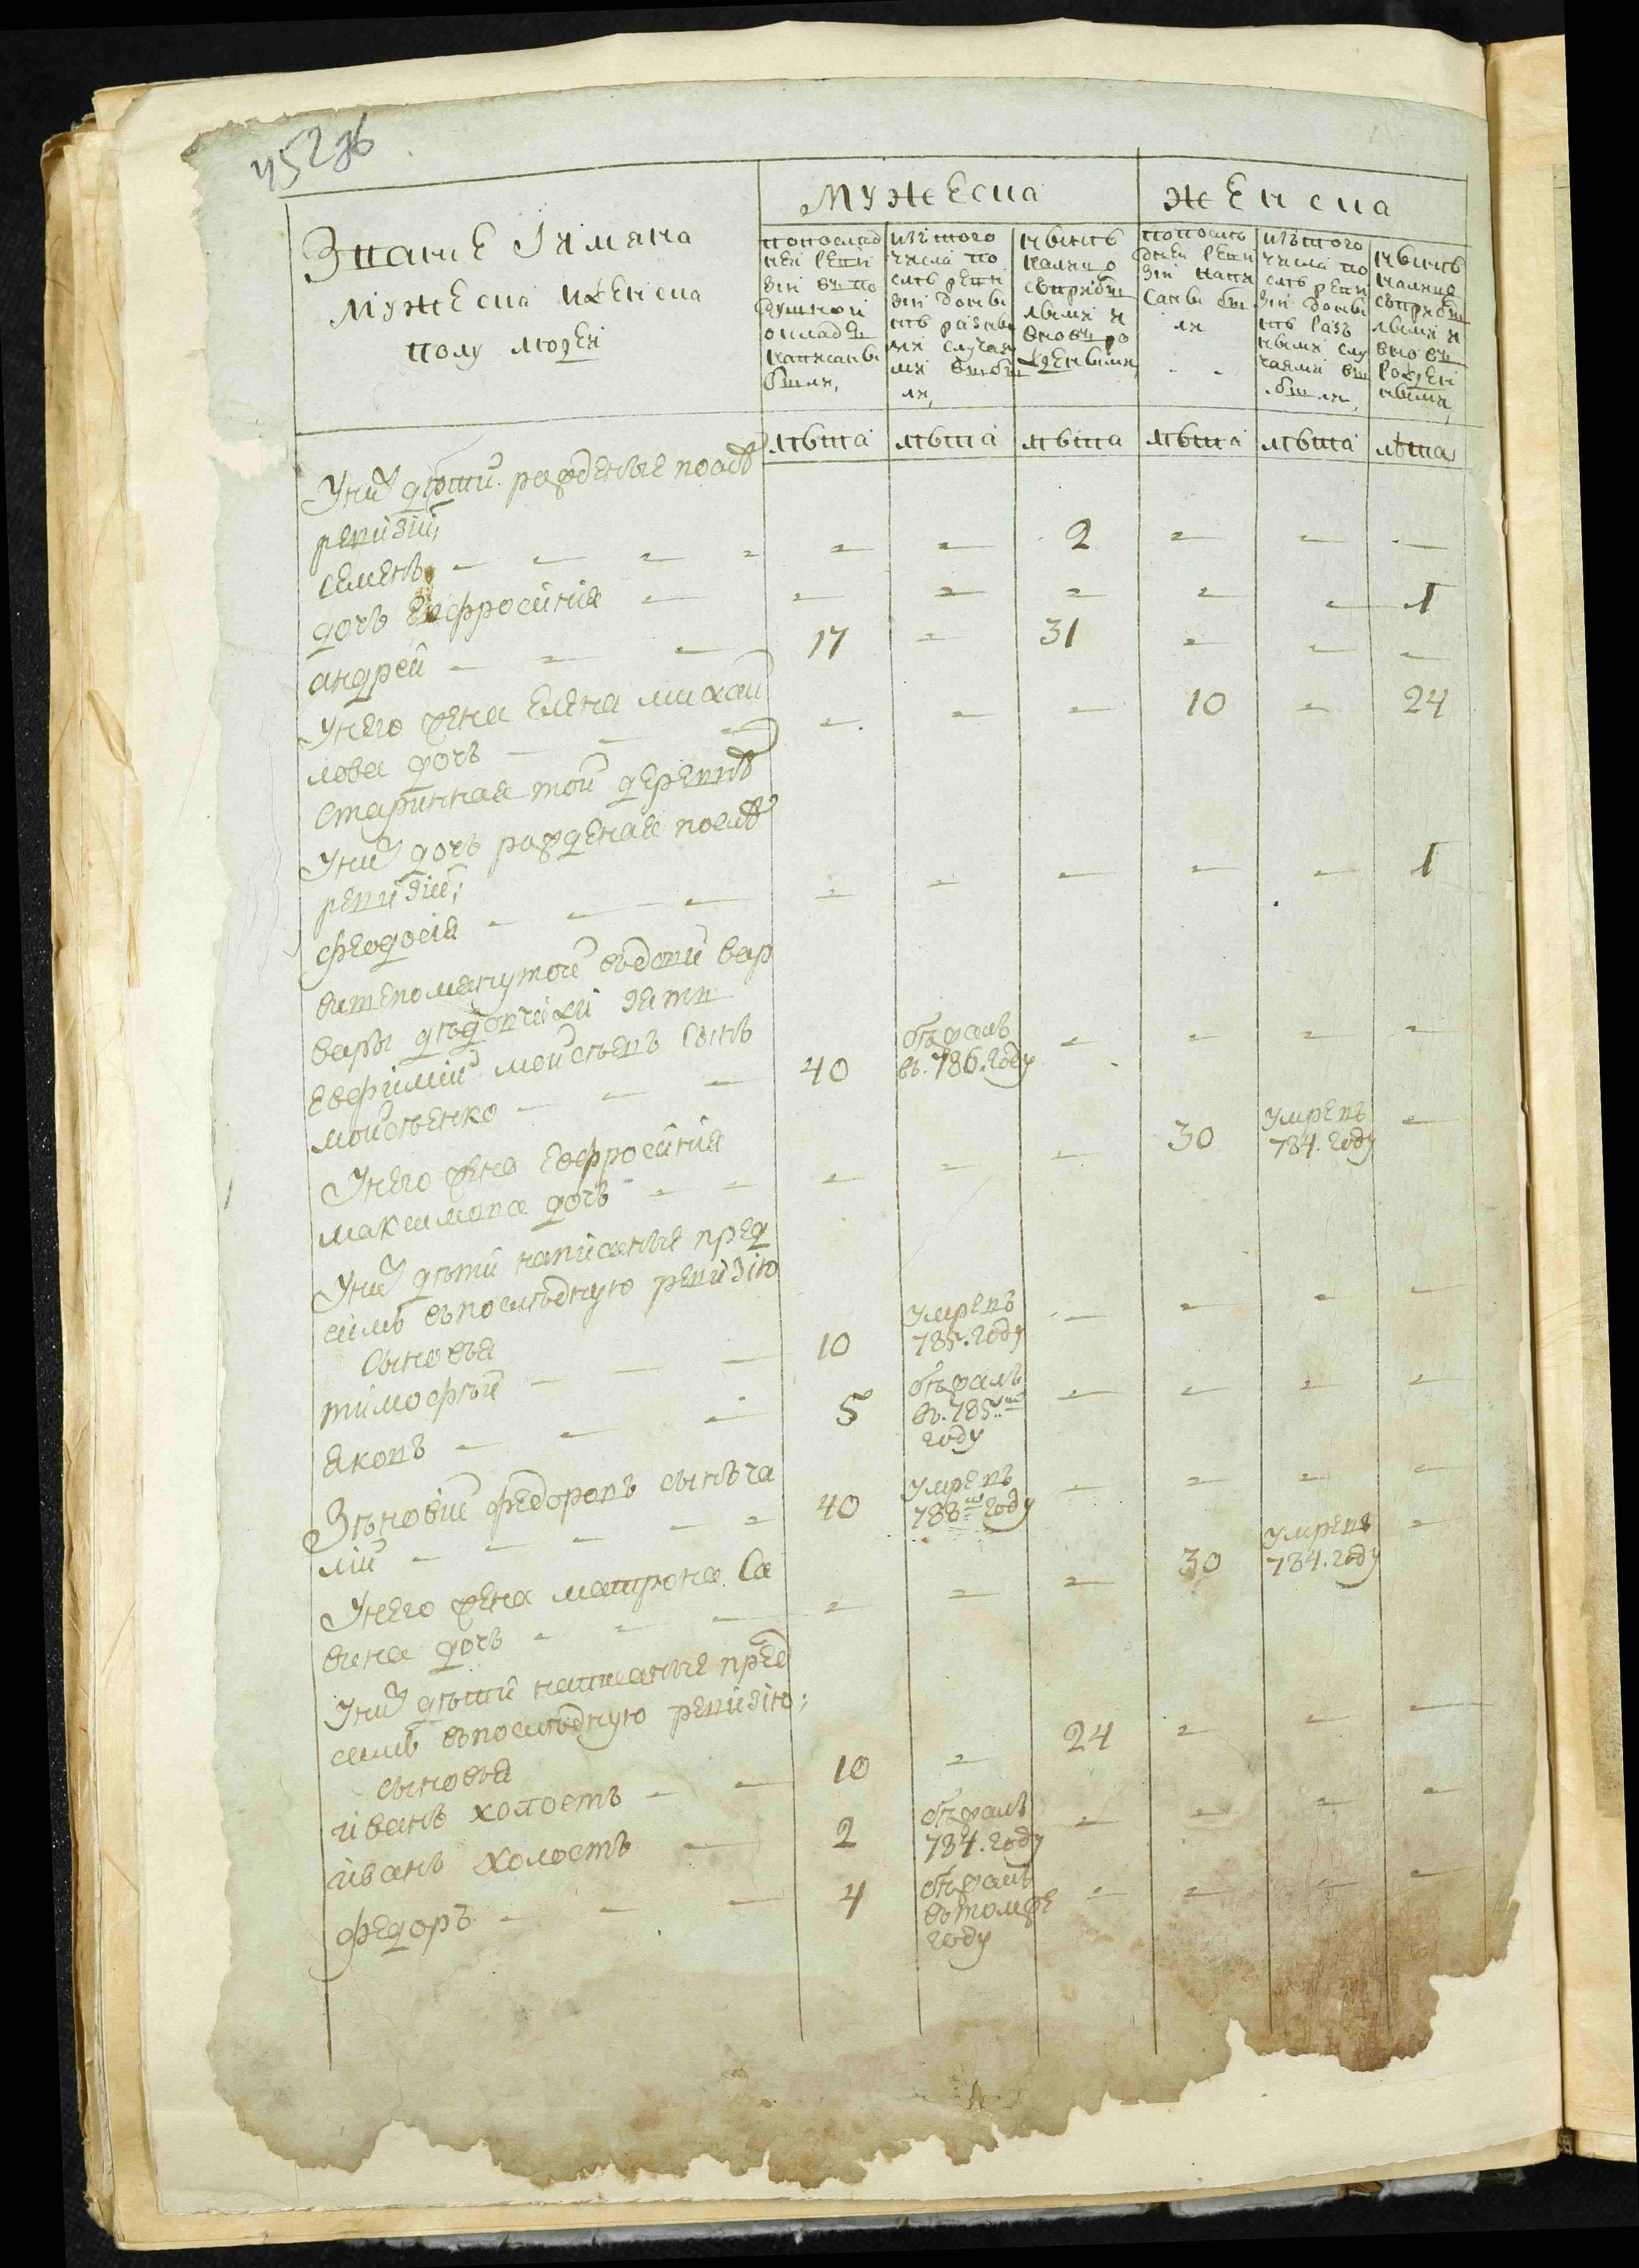 452об
Званіе Іимяна
мужеска иженска
полу людей
мужеска
женска
попослед
ней реви
зіи въ по
душной
окладъ
написаны
были,
изътого
числа по
слѣ реви
зіи домы
нѣ разны
ми случая
ми выбы
ли,
нынѣ
налицо
съприбы
лыми и
вновь ро
жденными,
попослѣ
дней реви
зіи напи
саны бы
ли
изътого
числа по
слѣ реви
зіи домы
нѣ разъ
ными слу
чаями вы
были,
нынѣ
налицо
съприбы
лыми и
вновь
рожден
ными,
лѣта лѣта лѣта лѣта лѣта лѣта
Уних дѣти рожденые послѣ
ревизіи;
семенъ - - - - - - 2 - - -
дочь евфросиніа - - - - - - 1
андрей - - - 17 - 31 - - -
Унего жена елена михаи
лова дочь - - - - - - 10 - 24
старинная той деревнѣ
Уних дочь рожденая послѣ
ревизіи;
феодосіа - - - - - - - - 1
вишепомянутой вдови вар
вары дѣдовчихи зять
евфимій мойсѣевъ сынъ
мойсѣенко - - - 40 бѣжалъ въ. 786. году - - - -
Унего жена евфросиніа
максимова дочь - - - - - 30 умрепъ 784. году -
Уних дѣти написаные пред
симъ въпослѣдную ревизію
сыновья
тимофѣй - - - 10 умрепъ 785. году - - - -
яковъ - - - 5 бѣжалъ въ. 785м году - - - -
Зѣновій федоровъ сынъ га
лій - - - - - 40 умрепъ 788м году - - - -
Унего жена матрона са
вина дочь - - - - - - 30 умрепъ 784. году -
Уних дѣти написаные пред
симъ въпослѣдную ревизію;
сыновья
иванъ холостъ - - 10 - 24 - - -
иванъ холостъ - 2 бѣжалъ 784. году - - - -
федоръ - - - 4 бѣжалъ вътомже году - - - -